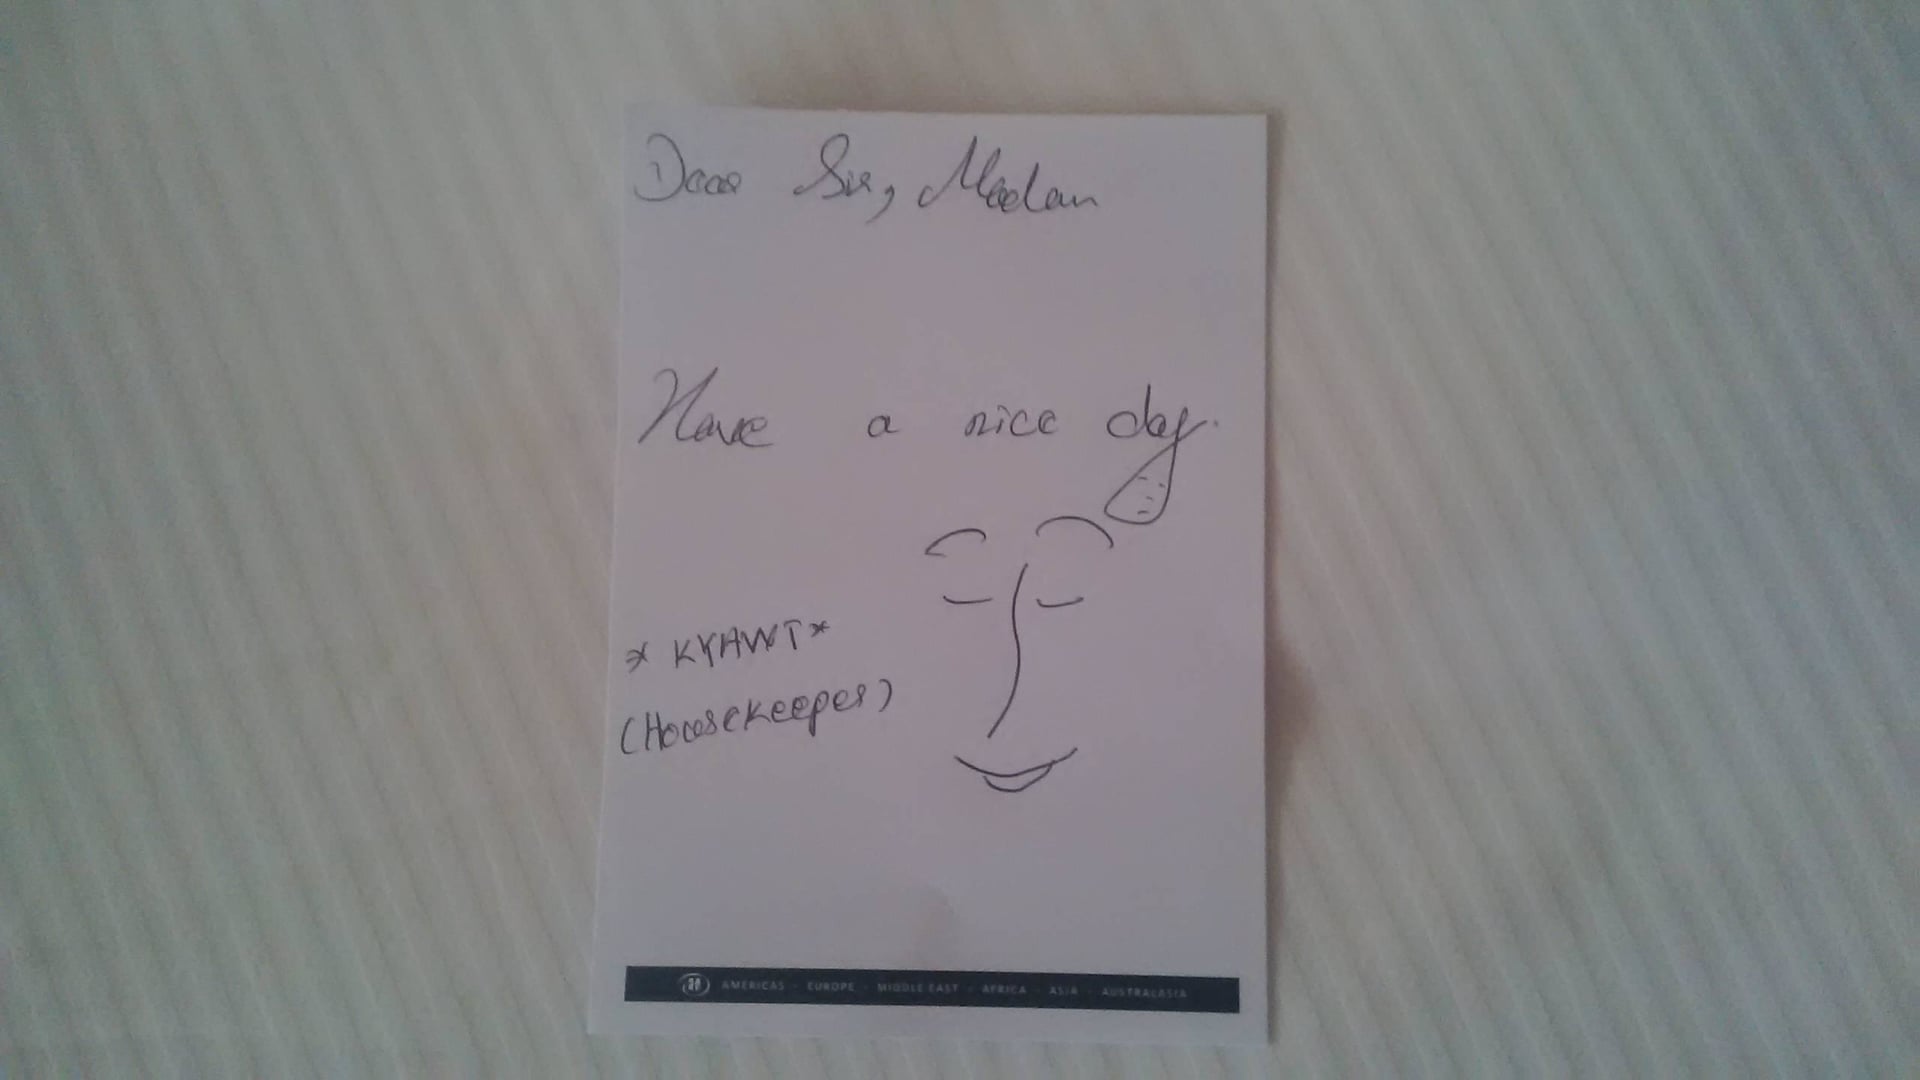 Dear Sir, Madam
Have a nice day.
* KYAWT *
(Housekeeper)
AMERICAS · EUROPE · MIDDLE EAST · AFRICA · ASIA · AUSTRALASIA